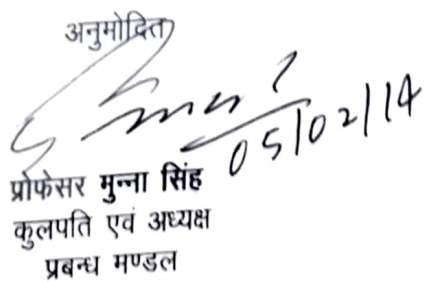 अनुमोदित
05/02/14
प्रोफेसर मुन्ना सिंह
कुलपति एवं अध्यक्ष
प्रबन्ध मण्डल